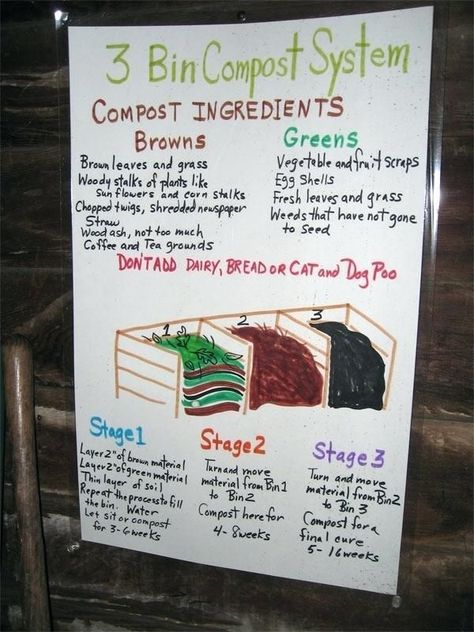 3 Bin Compost System
COMPOST INGREDIENTS
Browns
Brown leaves and grass
Woody stalks of plants like
Sun flowers and corn stalks
Chopped twigs, shredded newspaper
Straw
Wood ash, not too much
Coffee and Tea grounds
Greens
Vegetable and fruit scraps
Egg Shells
Fresh leaves and grass
Weeds that have not gone
to Seed
DON'T ADD DAIRY, BREAD OR CAT and DOG POO
1
2
3
Stage 1
Layer 2" of brown material
Layer 2" of green material
Thin layer of soil
Repeat the process to fill
the bin. Water
Let sit or compost
for 3-6 weeks
Stage 2
Turn and move
material from Bin 1
to Bin 2
Compost here for
4-8 weeks
Stage 3
Turn and move
material from Bin 2
to Bin 3
Compost for a
final cure
5-16 weeks